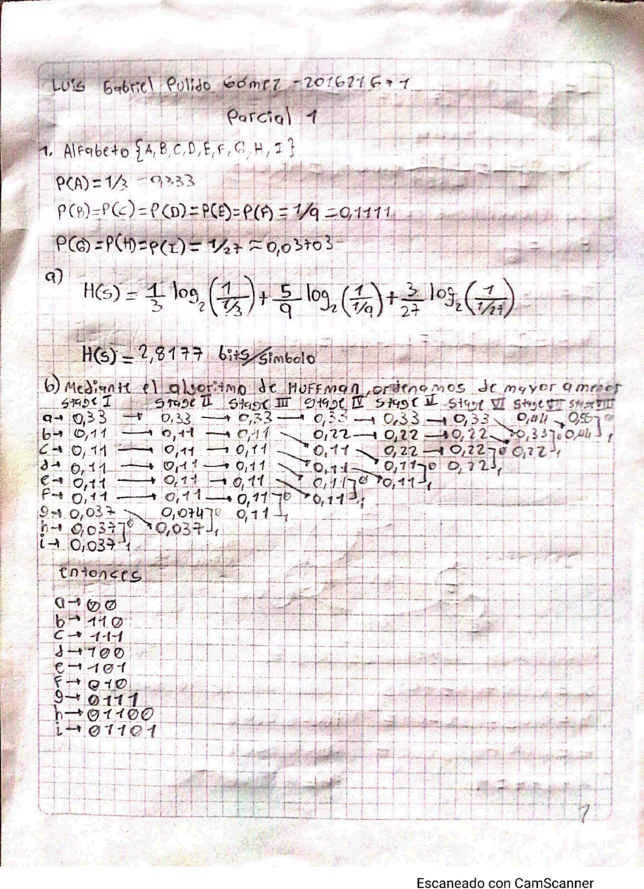 Luis Gabriel Pulido Gómez - 20162167-1
Parcial 1
1. Alfabeto {A,B,C,D,E,F,G,H,I}
P(A)=1/3 = 0,333
P(B)=P(C)=P(D)=P(E)=P(F)=1/9=0,1111
P(G)=P(H)=P(I)=1/27≈0,03703
a)
H(s)= 1/3 log2(1/(1/3)) + 5/9 log2(1/(1/9)) + 3/27 log2(1/(1/27))
H(s)=2,8177 bits/símbolo
b) Mediante el algoritmo de Huffman, ordenamos de mayor a menor
Stage I Stage II Stage III Stage IV Stage V Stage VI Stage VII Stage VIII
a→0,33 → 0,33 → 0,33 → 0,33 → 0,33 → 0,33 0,44 0,55 0
b→0,11 → 0,11 → 0,11 0,22 → 0,22 → 0,22 0,33 0 0,44 1
c→0,11 → 0,11 → 0,11 0,11 0,22 → 0,22 0 0,22 1
d→0,11 → 0,11 → 0,11 0,11 0,11 0 0,22 1
e→0,11 → 0,11 → 0,11 0,11 0 0,11 1
f→0,11 → 0,11 → 0,11 0 0,11 1
g→0,037 0,074 0 0,11 1
h→0,037 0 0,037 1
i→0,037 1
entonces
a→00
b→110
c→111
d→100
e→101
f→010
g→0111
h→01100
i→01101
Escaneado con CamScanner